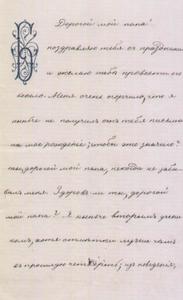 Дорогой мой папа!
поздравляю тебя съ праздникомъ
и желаю тебѣ провести его
весело. Меня очень огорчило, что я
не получилъ отъ тебя письма
на мое рожденіе; чтобы это значило?
ты, дорогой мой папа, никогда не забы
валъ меня. Здоровъ ли ты, дорогой
мой папа? Я нынче вторымъ учени
комъ, хотя отмѣтки лучше чѣмъ
въ прошлую четверть; изъ поведенія,